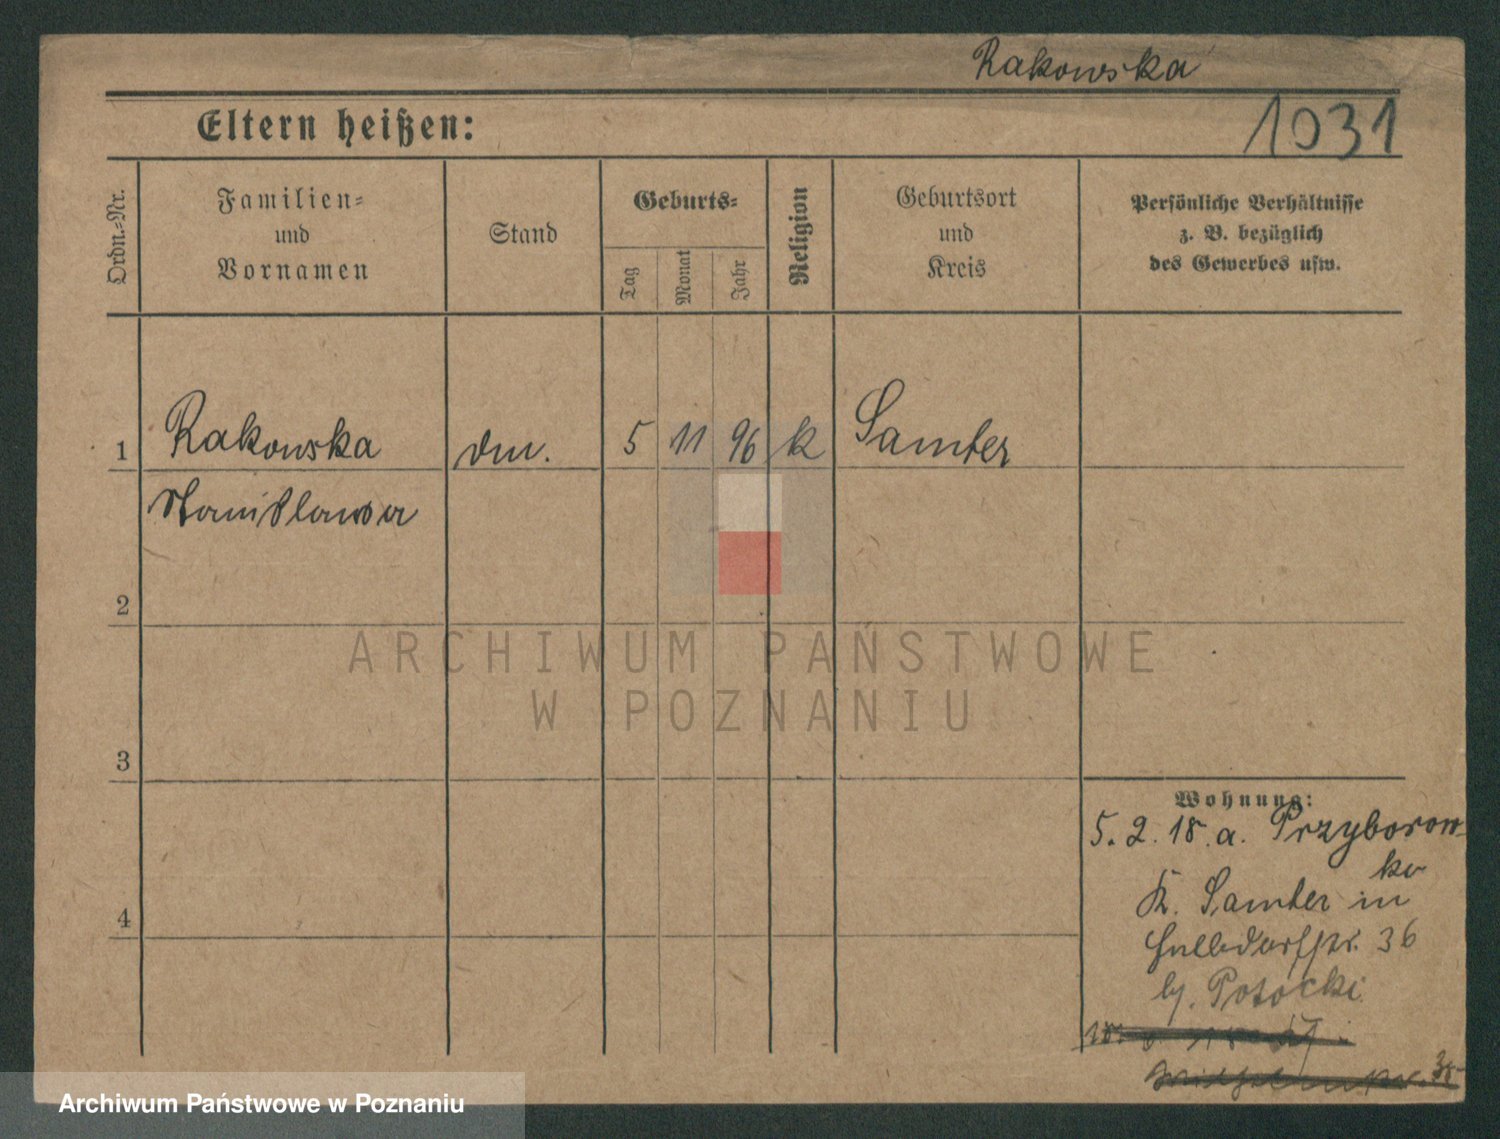 Rakowska
1031
Eltern heißen:
Ordn.=Nr.
Familien=
und
Vornamen
Stand
Geburts=
Tag
Monat
Jahr
Religion
Geburtsort
und
Kreis
Persönliche Verhältnisse
z. B. bezüglich
des Gewerbes usw.
1 Rakowska 5 11 96 k Samter
Stanislawa
2
ARCHIWUM PAŃSTWOWE
W POZNANIU
3
4
Wohnung:
5. 2. 18. a. Przyborow-
ko
K. Samter in
36
Potocki
35
Archiwum Państwowe w Poznaniu